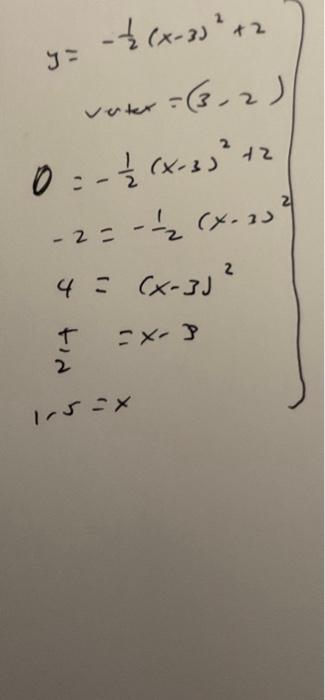 y = -½ (x-3)² +2
vertex = (3, 2)
0 = -½ (x-3)² +2
-2 = -½ (x-3)²
4 = (x-3)²
±2 = x-3
1, 5 = x